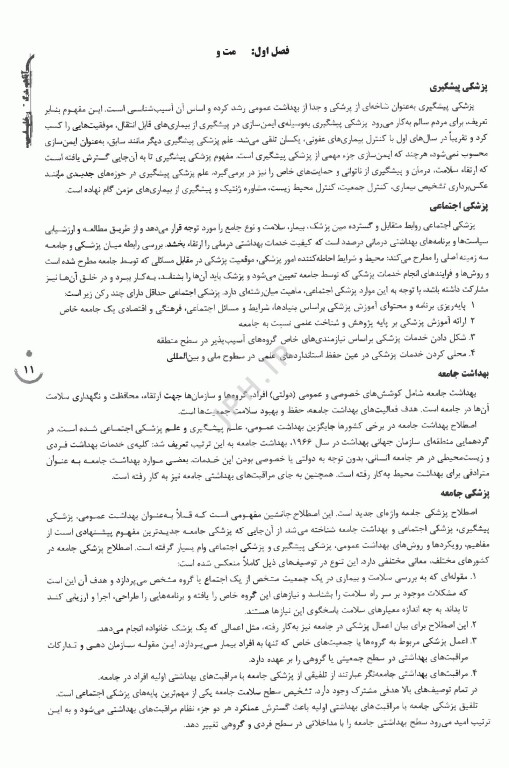 فصل اول: مت و
پزشکی پیشگیری
پزشکی پیشگیری به‌عنوان شاخه‌ای از پزشکی و جدا از بهداشت عمومی رشد کرده و اساس آن آسیب‌شناسی است. این مفهوم بنابر
تعریف، برای مردم سالم به‌کار می‌رود. پزشکی پیشگیری به‌وسیله‌ی ایمن‌سازی در پیشگیری از بیماری‌های قابل انتقال، موفقیت‌هایی را کسب
کرد و تقریباً در سال‌های اول با کنترل بیماری‌های عفونی، یکسان تلقی می‌شد. علم پزشکی پیشگیری دیگر مانند سابق، به‌عنوان ایمن‌سازی
محسوب نمی‌شود، هرچند که ایمن‌سازی جزء مهمی از پزشکی پیشگیری است. مفهوم پزشکی پیشگیری تا به آن‌جایی گسترش یافته است
که ارتقاء سلامت، درمان و پیشگیری از ناتوانی و حمایت‌های خاص را نیز در برمی‌گیرد. علم پزشکی پیشگیری در حوزه‌های جدیدی مانند
عکس‌برداری تشخیص بیماری، کنترل جمعیت، کنترل محیط زیست، مشاوره ژنتیک و پیشگیری از بیماری‌های مزمن گام نهاده است.
پزشکی اجتماعی
پزشکی اجتماعی روابط متقابل و گسترده مین پزشک، بیمار، سلامت و نوع جامع را مورد توجه قرار می‌دهد و از طریق مطالعه و ارزشیابی
سیاست‌ها و برنامه‌های بهداشتی درمانی درصدد است که کیفیت خدمات بهداشتی درمانی را ارتقاء بخشد. بررسی رابطه میان پزشکی و جامعه
سه زمینه اصلی را مطرح می‌کند: محیط و شرایط احاطه‌کننده امور پزشکی، موقعیت پزشکی در مقابل مسائلی که توسط جامعه مطرح شده است
و روش‌ها و فرایندهای انجام خدمات پزشکی که توسط جامعه تعیین می‌شود و پزشک باید آن‌ها را بشناسد، به‌کار ببرد و در خلق آن‌ها نیز
مشارکت داشته باشد، با توجه به این موارد پزشکی اجتماعی، ماهیت میان‌رشته‌ای دارد. پزشکی اجتماعی حداقل دارای چند رکن زیر است:
۱. پایه‌ریزی برنامه و محتوای آموزش پزشکی براساس بنیادها، شرایط و مسائل اجتماعی، فرهنگی و اقتصادی یک جامعه خاص
۲. ارائه آموزش پزشکی بر پایه پژوهش و شناخت علمی نسبت به جامعه
۳. شکل دادن خدمات پزشکی براساس نیازمندی‌های خاص گروه‌های آسیب‌پذیر در سطح منطقه
۴. محلی کردن خدمات پزشکی در عین حفظ استانداردهای علمی در سطوح ملی و بین‌المللی
۱۱
بهداشت جامعه
بهداشت جامعه شامل کوشش‌های خصوصی و عمومی (دولتی) افراد، گروه‌ها و سازمان‌ها جهت ارتقاء، محافظت و نگهداری سلامت
آن‌ها در جامعه است. هدف فعالیت‌های بهداشت جامعه، حفظ و بهبود سلامت جمعیت‌ها است.
اصطلاح بهداشت جامعه در برخی کشورها جایگزین بهداشت عمومی، علم پیشگیری و علم پزشکی اجتماعی شده است. در
گردهمایی منطقه‌ای سازمان جهانی بهداشت در سال ۱۹۶۶، بهداشت جامعه به این ترتیب تعریف شد: کلیه‌ی خدمات بهداشت فردی
و زیست‌محیطی در هر جامعه انسانی، بدون توجه به دولتی یا خصوصی بودن این خدمات. بعضی موارد بهداشت جامعه به عنوان
مترادفی برای بهداشت محیط به‌کار رفته است. همچنین به جای مراقبت‌های بهداشتی جامعه نیز به کار رفته است.
پزشکی جامعه
اصطلاح پزشکی جامعه واژه‌ای جدید است. این اصطلاح جانشین مفهومی است که قبلاً به‌عنوان بهداشت عمومی، پزشکی
پیشگیری، پزشکی اجتماعی و بهداشت جامعه شناخته می‌شد. از آن‌جایی که پزشکی جامعه جدیدترین مفهوم پیشنهادی است از
مفاهیم، رویکردها و روش‌های بهداشت عمومی، پزشکی پیشگیری و پزشکی اجتماعی وام بسیار گرفته است. اصطلاح پزشکی جامعه در
کشورهای مختلف، معانی مختلفی دارد. این تنوع در توصیف‌های ذیل کاملاً منعکس شده است:
۱. مقوله‌ای که به بررسی سلامت و بیماری در یک جمعیت مشخص از یک اجتماع یا گروه مشخص می‌پردازد و هدف آن این است
که مشکلات موجود بر سر راه سلامت را بشناسد و نیازهای این گروه خاص را یافته و برنامه‌هایی را طراحی، اجرا و ارزیابی کند
تا بداند به چه اندازه معیارهای سلامت پاسخگوی این نیازها هستند.
۲. این اصطلاح برای بیان اعمال پزشکی در جامعه نیز به‌کار رفته، مثل اعمالی که یک پزشک خانواده انجام می‌دهد.
۳. اعمال پزشکی مربوط به گروه‌ها یا جمعیت‌های خاص که تنها به افراد بیمار می‌پردازد. این مقوله سازمان دهی و تدارکات
مراقبت‌های بهداشتی در سطح جمعیتی یا گروهی را بر عهده دارد.
۴. مراقبت‌های بهداشتی جامعه‌نگر عبارتند از تلفیقی از پزشکی جامعه با مراقبت‌های بهداشتی اولیه افراد در جامعه.
در تمام توصیف‌های بالا هدفی مشترک وجود دارد. تشخیص سطح سلامت جامعه یکی از مهم‌ترین پایه‌های پزشکی اجتماعی است.
تلفیق پزشکی جامعه با مراقبت‌های بهداشتی اولیه باعث گسترش عملکرد هر دو جزء نظام مراقبت‌های بهداشتی می‌شود و به این
ترتیب امید می‌رود سطح بهداشتی جامعه را با مداخلاتی در سطح فردی و گروهی تغییر دهد.